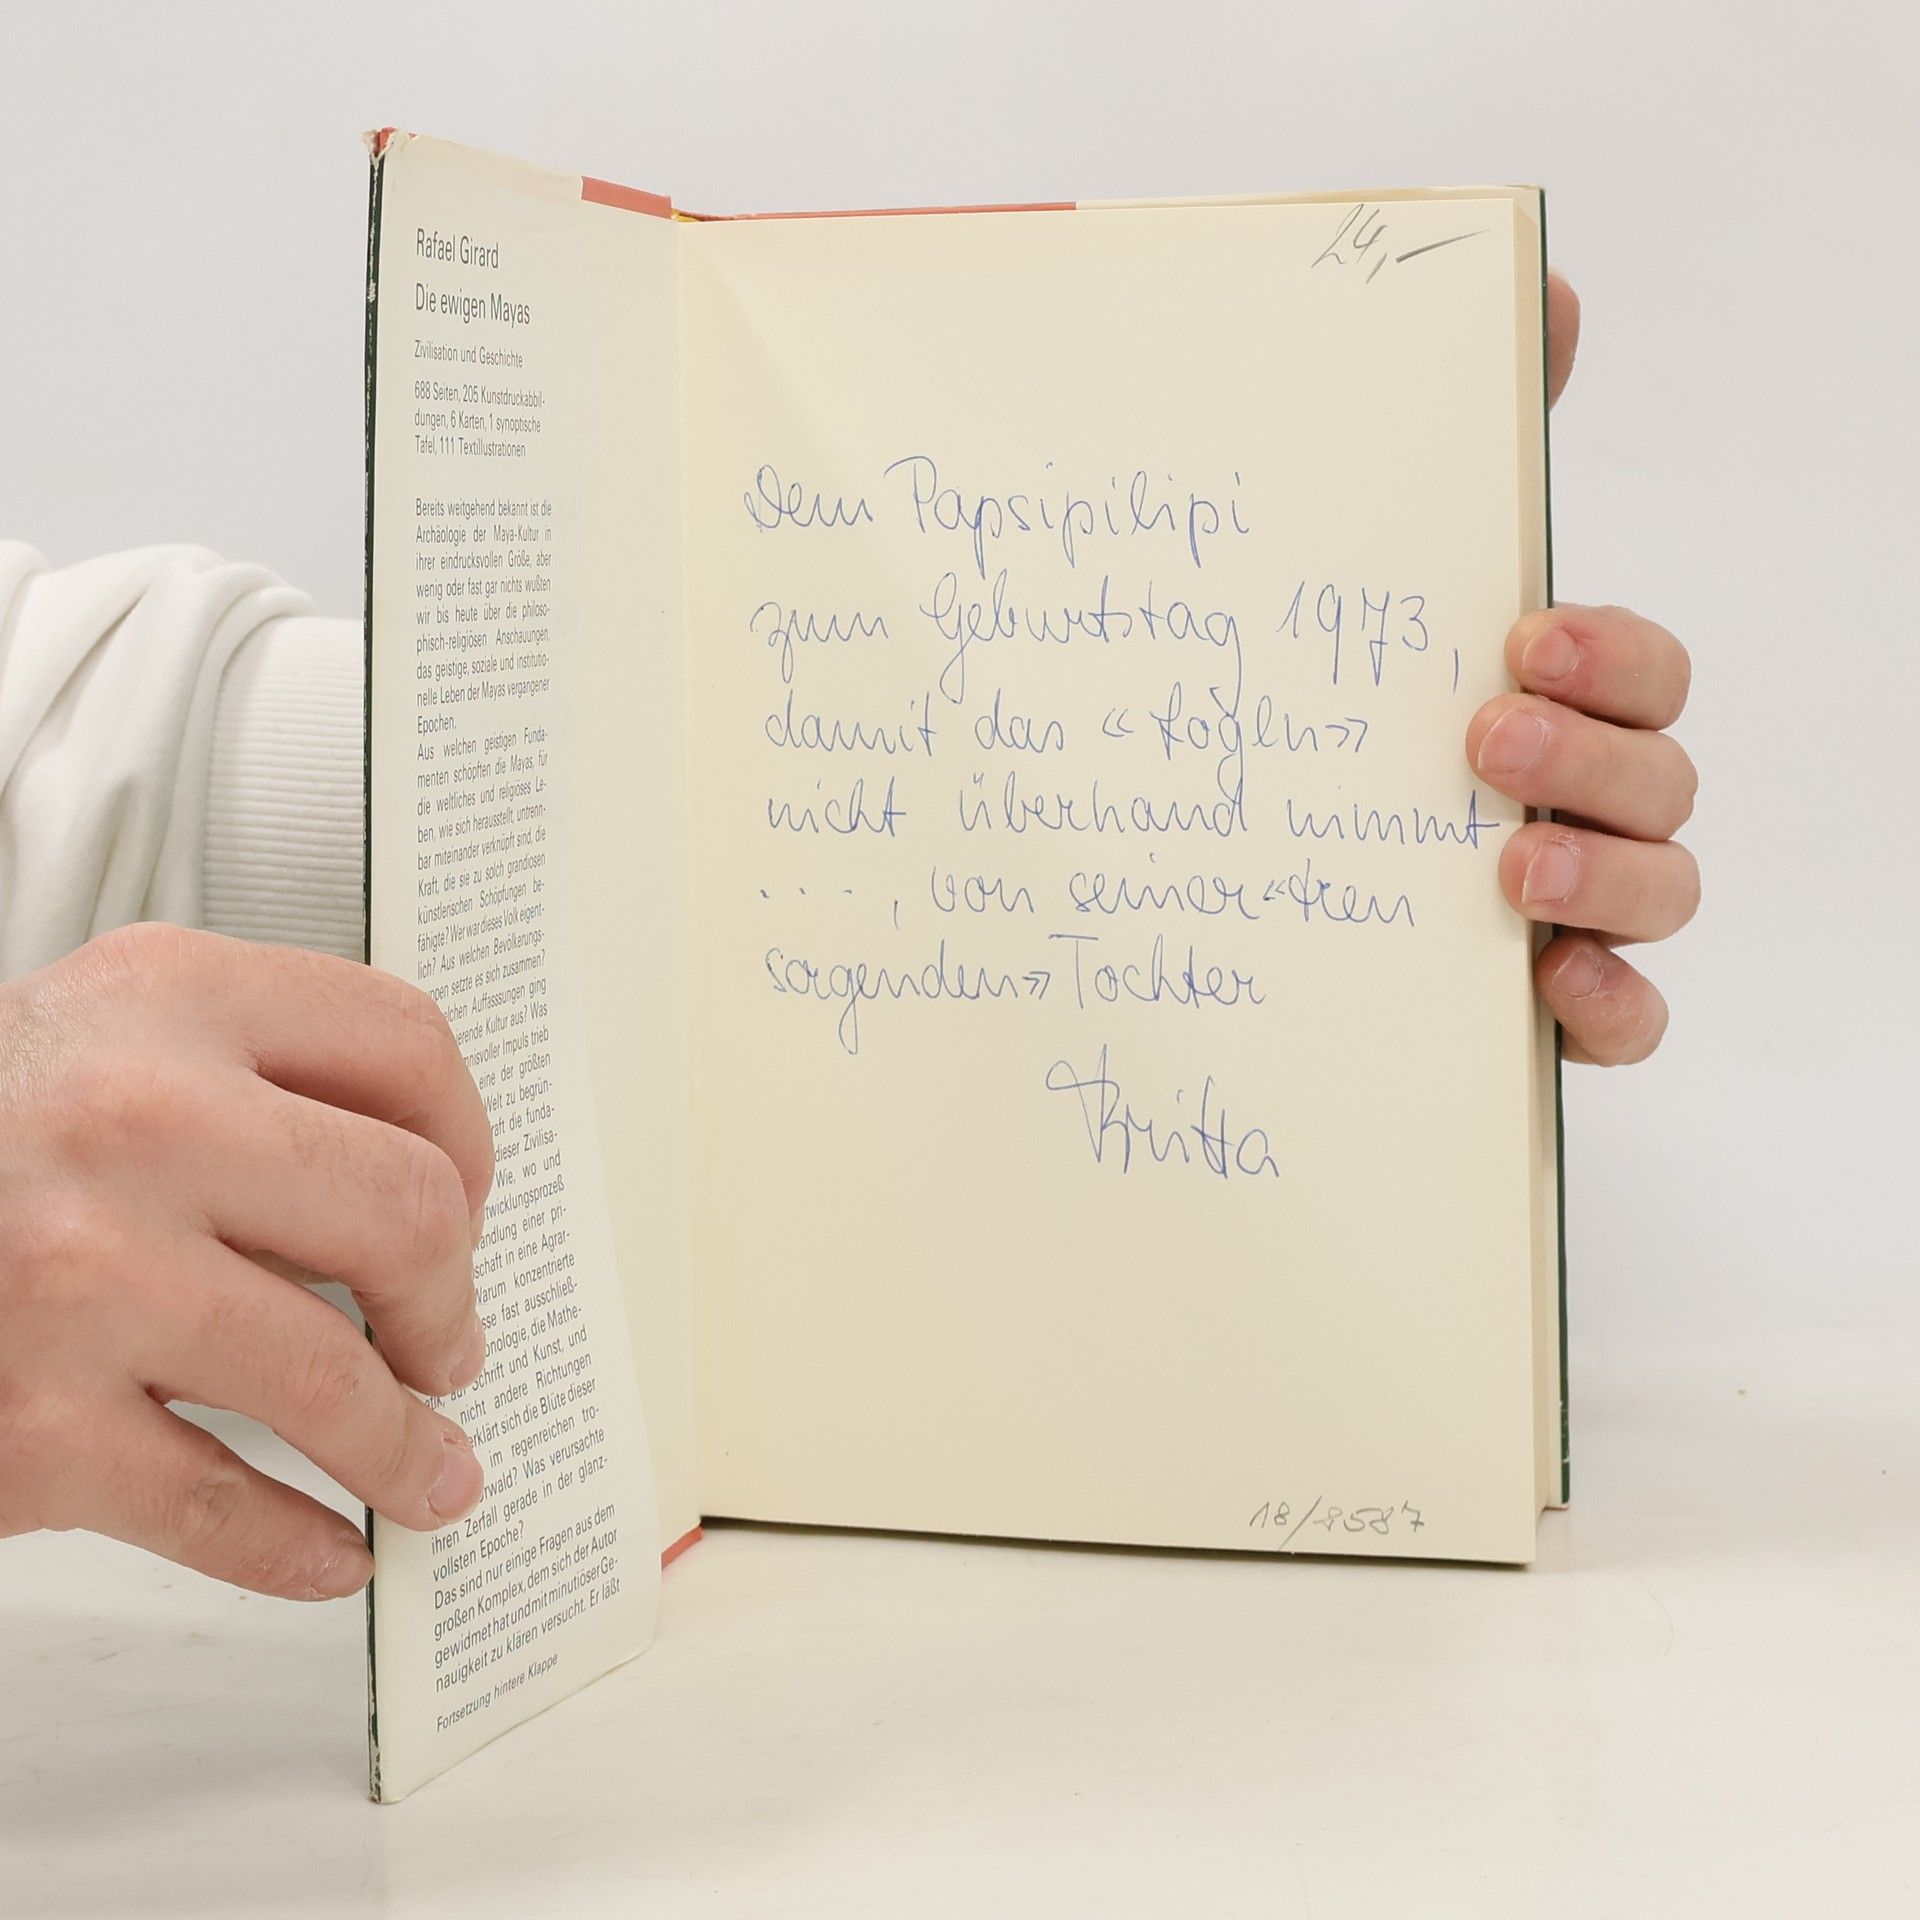 Rafael Girard
Die ewigen Mayas
Zivilisation und Geschichte
688 Seiten, 205 Kunstdruckabbil-
dungen, 6 Karten, 1 synoptische
Tafel, 111 Textillustrationen
Bereits weitgehend bekannt ist die
Archäologie der Maya-Kultur in
ihrer eindrucksvollen Größe, aber
wenig oder fast gar nichts wußten
wir bis heute über die philoso-
phisch-religiösen Anschauungen,
das geistige, soziale und institutio-
nelle Leben der Mayas vergangener
Epochen.
Aus welchen geistigen Funda-
menten schöpften die Mayas, für
die weltliches und religiöses Le-
ben, wie sich herausstellt, untrenn-
bar miteinander verknüpft sind, die
Kraft, die sie zu solch grandiosen
künstlerischen Schöpfungen be-
fähigte? Wer war dieses Volk eigent-
lich? Aus welchen Bevölkerungs-
ppen setzte es sich zusammen?
elchen Auffassungen ging
ierende Kultur aus? Was
mnisvoller Impuls trieb
eine der größten
Welt zu begrün-
raft die funda-
dieser Zivilisa-
Wie, wo und
twicklungsprozeß
andlung einer pri-
schaft in eine Agrar-
Warum konzentrierte
sse fast ausschließ-
onologie, die Mathe-
atik, auf Schrift und Kunst, und
nicht andere Richtungen
erklärt sich die Blüte dieser
im regenreichen tro-
rwald? Was verursachte
ihren Zerfall gerade in der glanz-
vollsten Epoche?
Das sind nur einige Fragen aus dem
großen Komplex, dem sich der Autor
gewidmet hat und mit minutiöser Ge-
nauigkeit zu klären versucht. Er läßt
Fortsetzung hintere Klappe
24,-
Dem Papsipilipi
zum Geburtstag 1973,
damit das «
»
nicht überhand nimmt
. . . , von seiner «treu
sorgenden» Tochter
Britta
18/8587